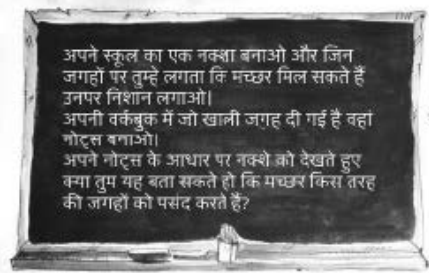 अपने स्कूल का एक नक्शा बनाओ और जिन
जगहों पर तुम्हे लगता कि मच्छर मिल सकते हैं
उनपर निशान लगाओ।
अपनी वर्कबुक में जो खाली जगह दी गई है वहां
नोट्स बनाओ।
अपने नोट्स के आधार पर नक्शे को देखते हुए
क्या तुम यह बता सकते हो कि मच्छर किस तरह
की जगहों को पसंद करते हैं?